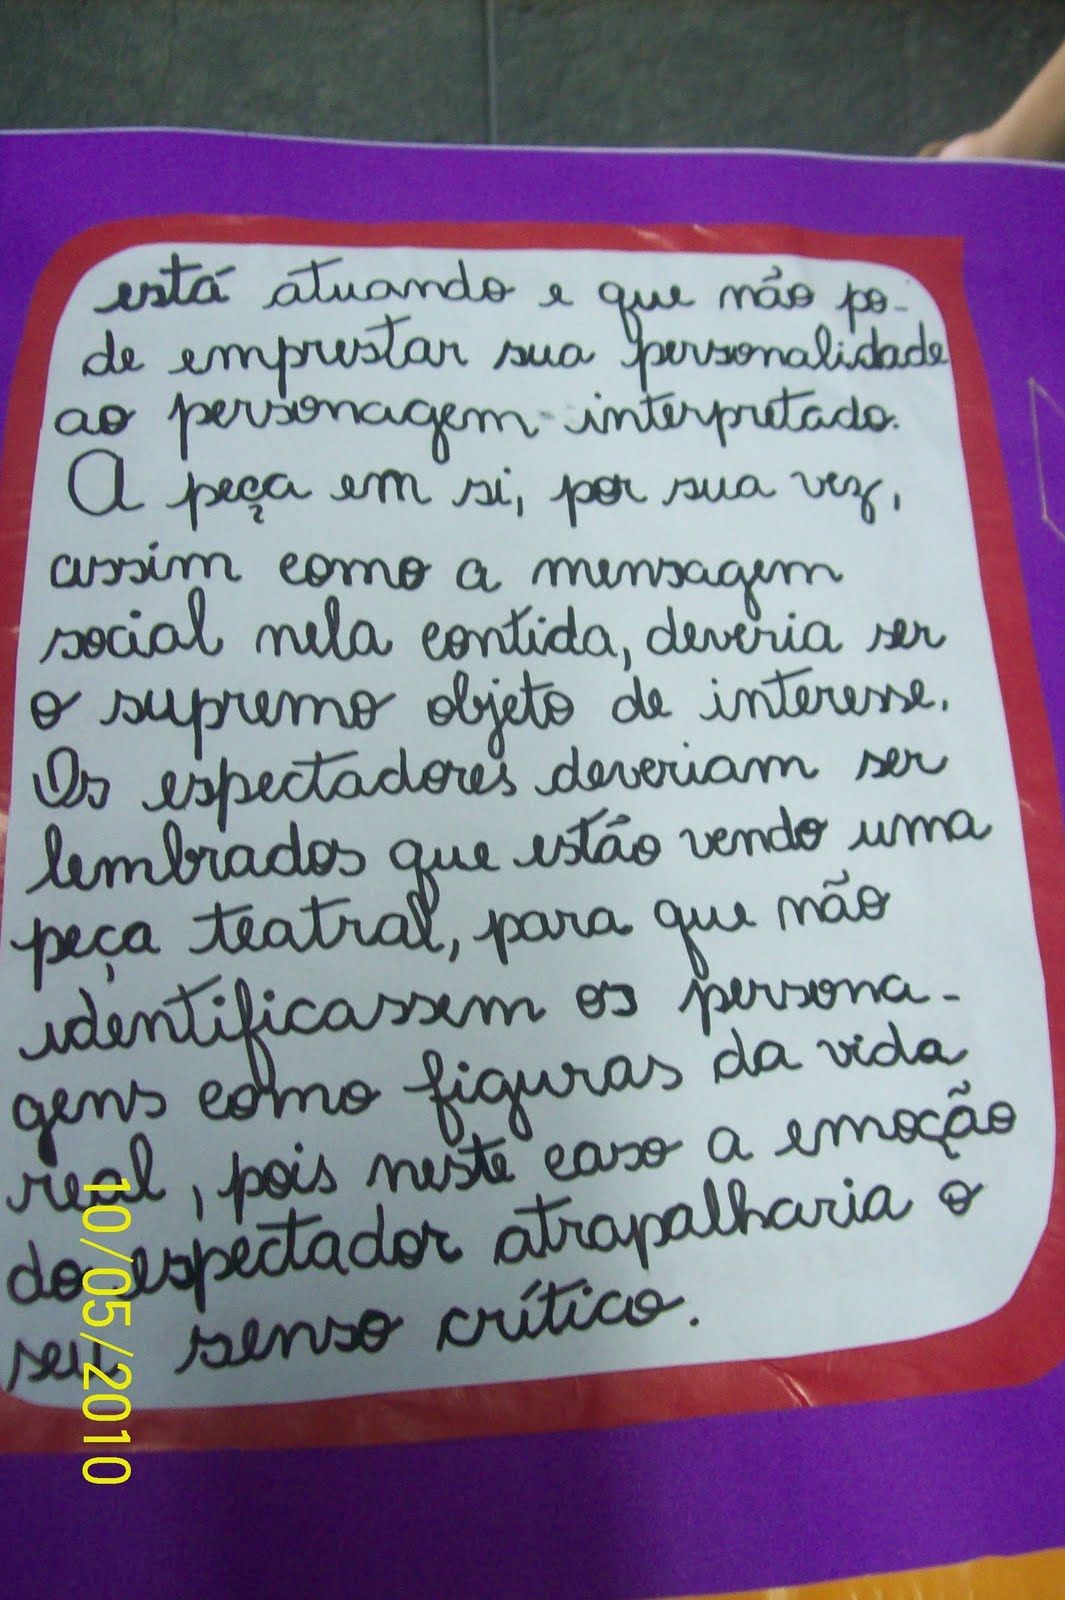 está atuando e que não po-
de emprestar sua personalidade
ao personagem interpretado.
A peça em si, por sua vez,
assim como a mensagem
social nela contida, deveria ser
o supremo objeto de interesse.
Os espectadores deveriam ser
lembrados que estão vendo uma
peça teatral, para que não
identificassem os persona-
gens como figuras da vida
real, pois neste caso a emoção
do espectador atrapalharia o
seu senso crítico.
10/05/2010